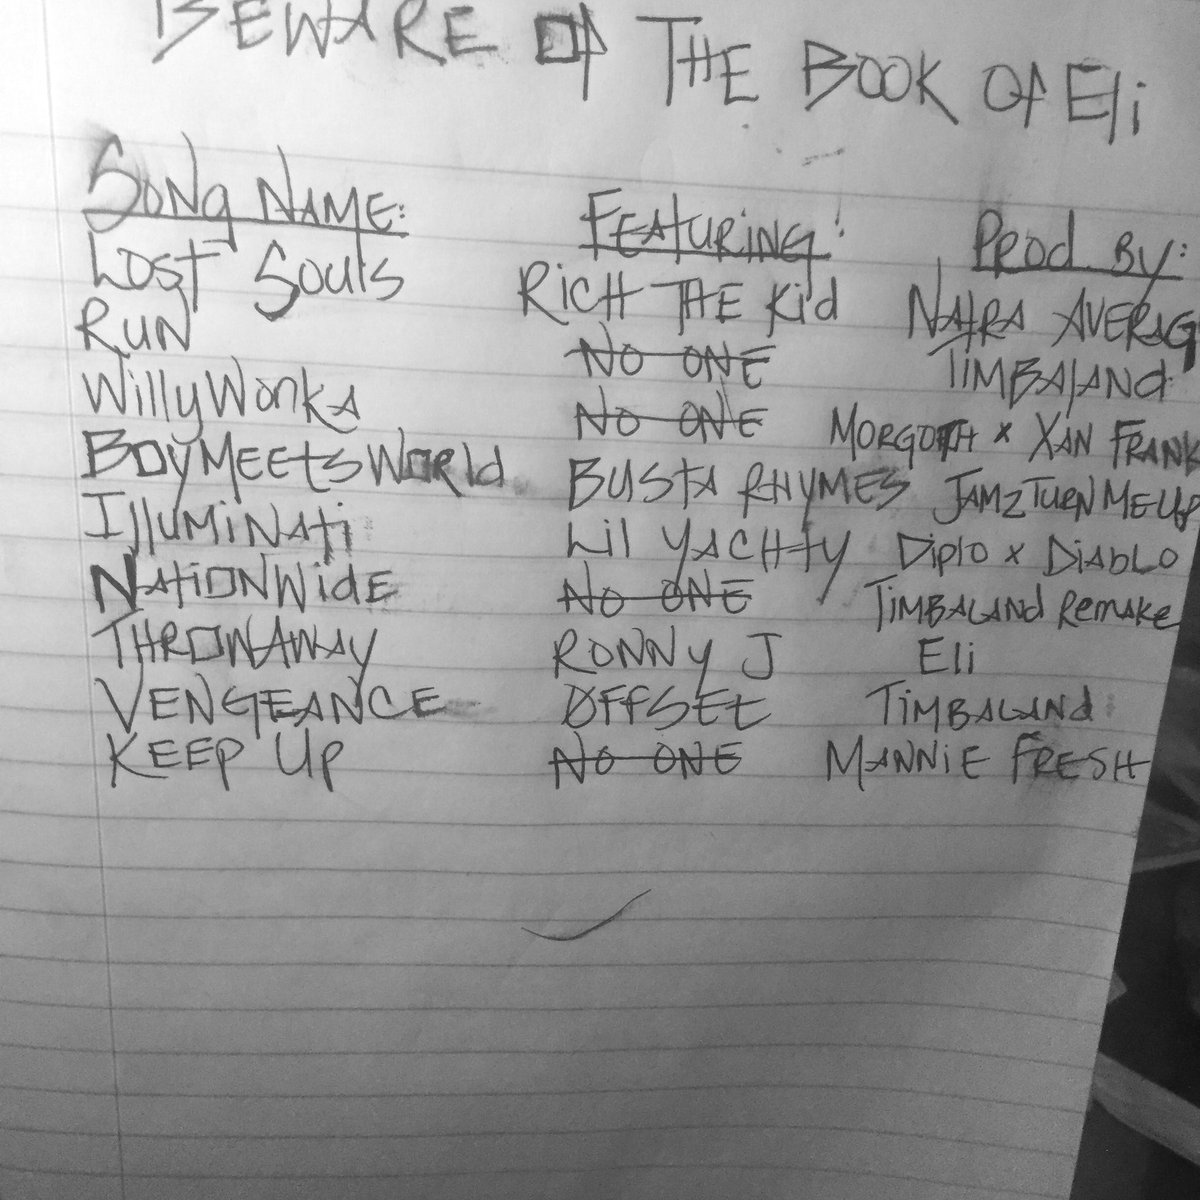 BEWARE OF THE BOOK OF Eli
SONG NAME: FEATURING: Prod By:
Lost Souls Rich THE Kid NAtRA AVERAG
RUN NO ONE TIMBALAND
Willy Wonka NO ONE MORGOTH x XAN FRANK
BOYMEEtsWORld BUSTA RHYMES JAMZTURNMEUP
IllUMiNAti Lil YACHty Diplo x DIABLO
NAtiONWidE No ONE TIMBALAND Remake
THROWAWAY RONNY J Eli
VENGEANCE OFFSEt TIMBALANd
KEEP UP No ONE MANNIE FRESH